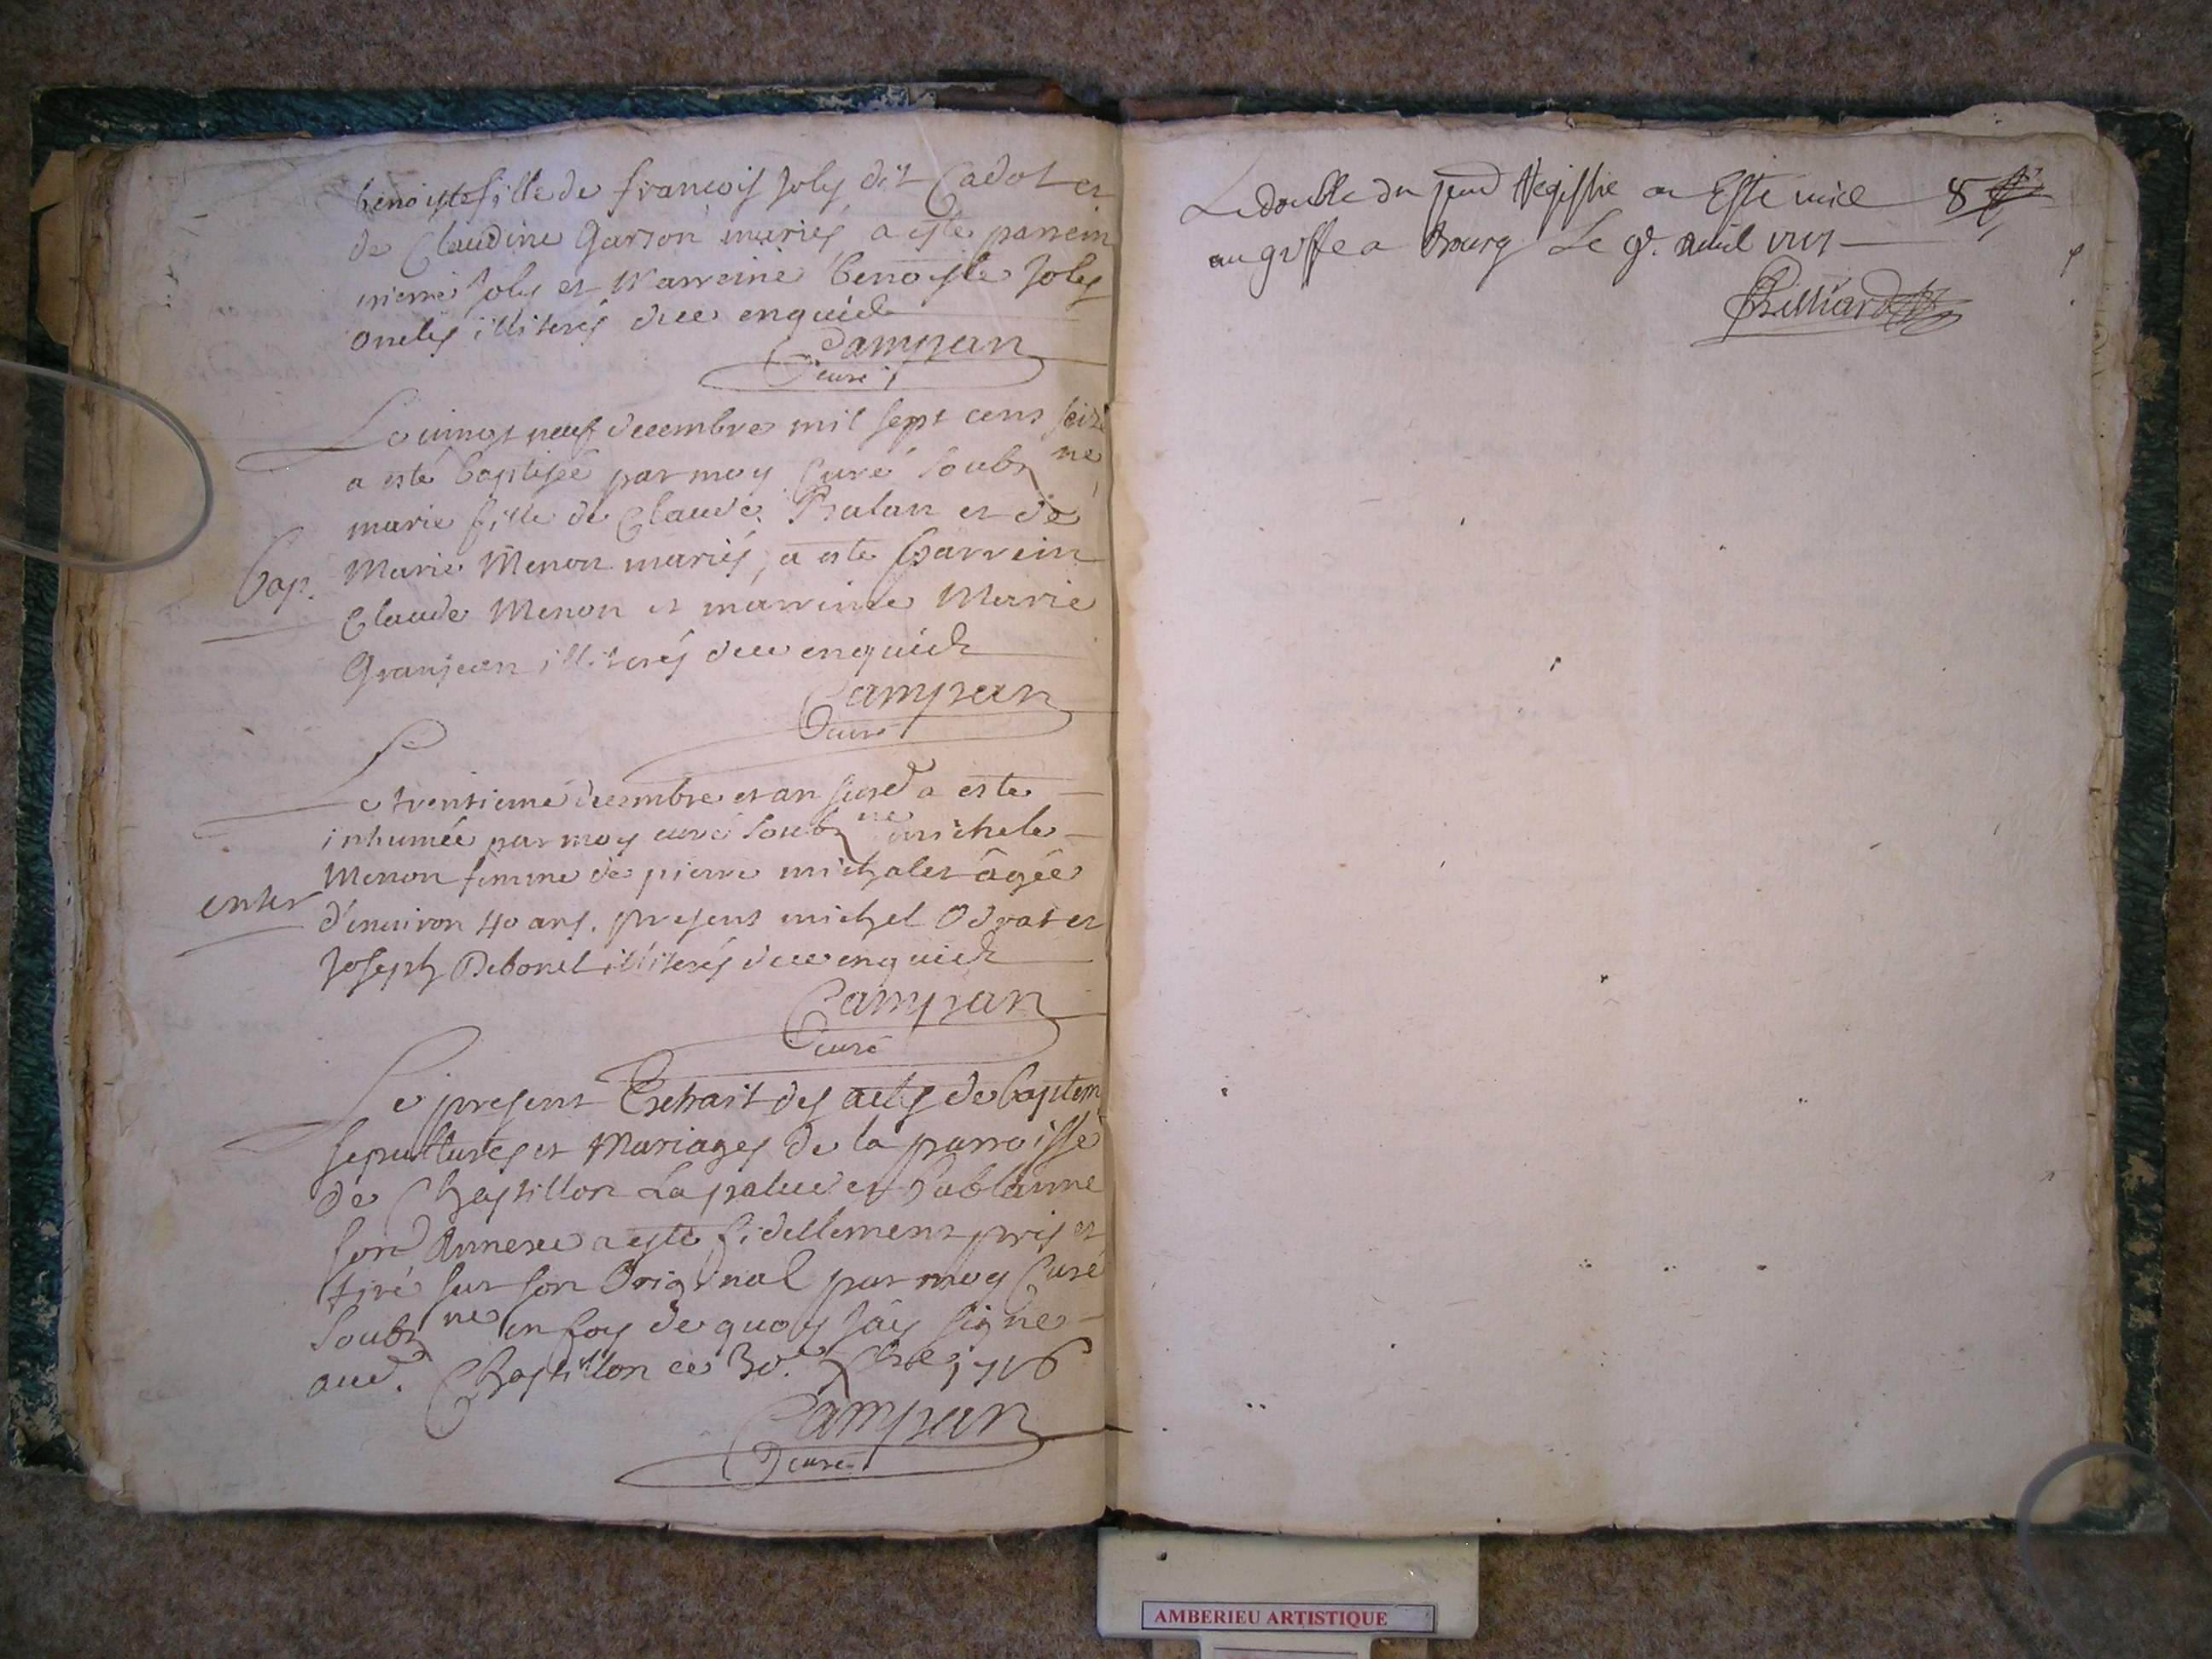 benoiste fille de francois Joly dit Cadot et
de Claudine Garson mariés, a esté parrein
pierre Joly et Marreine benoiste Joly
illiterés deue enquis
Campan
curé
Le vingt neuf decembre mil sept cens seize
a esté baptisée par moy Curé soubz né
marie fille de Claude Balan et de
Bap. Marie Menon mariés, a esté parrein
Claude Menon et marreine Marie
Granjean illiterés deue enquis
Campan
curé
Le trentieme decembre et an susd a esté
inhumée par moy curé soubz né michele
Menon femme de pierre michalet âgée
enter d'environ 40 ans. presens michel Odrat et
Joseph Debonel illiterés deue enquis
Campan
curé
Le present Extrait des actes de baptem
sepultures et Mariages de la parroisse
de Chastillon La palud et Publanne
son Annexe a esté fidellement pris et
tiré sur son Original par moy Curé
soubz né en foy de quoy Jay signé
aud. Chastillon ce 30.e xbre 1716
Campan
curé
Le double du pnt Registre a Esté mis
au greffe a Bourg Le 9e. avril 1717
Billiard
AMBERIEU ARTISTIQUE